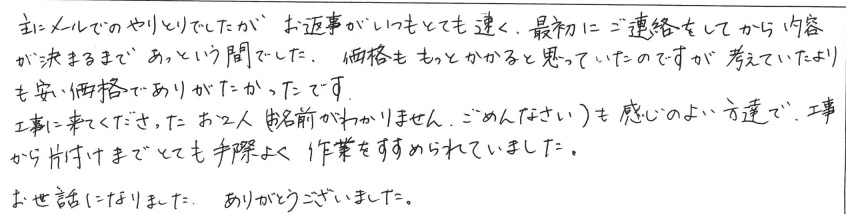 主にメールでのやりとりでしたが お返事がいつもとても速く、最初にご連絡をしてから内容
が決まるまで あっという間でした. 価格も もっとかかると思っていたのですが 考えていたより
も安い価格でありがたかったです.
工事に来てくださった お2人 (お名前がわかりません. ごめんなさい) も 感じのよい方達で、工事
から片付けまでとても手際よく 作業をすすめられていました。
お世話になりました. ありがとうございました。